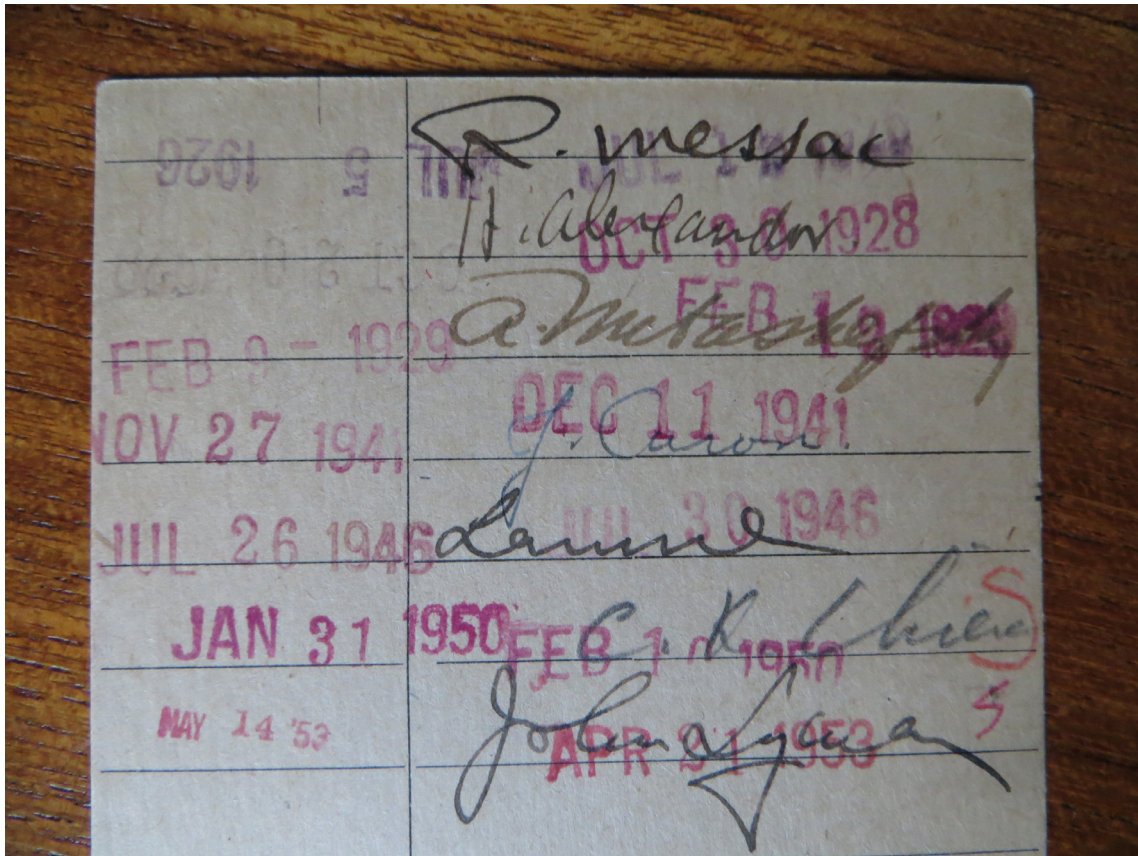 JUL 5 1926 R. Messac JUL
H. Alexander OCT 30 1928
FEB 9 - 1929 A. FEB 19 1929
NOV 27 1941 DEC 11 1941
J. Caron
JUL 26 1946 JUL 30 1946
JAN 31 1950 C. K. FEB 1 1950 S
MAY 14 '53 John Lyman APR 21 1953 S